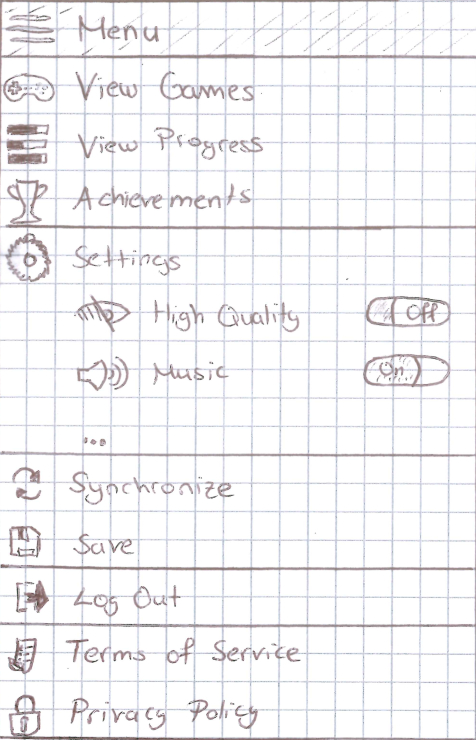 Menu
View Games
View Progress
Achievements
Settings
High Quality Off
Music On
...
Synchronize
Save
Log Out
Terms of Service
Privacy Policy